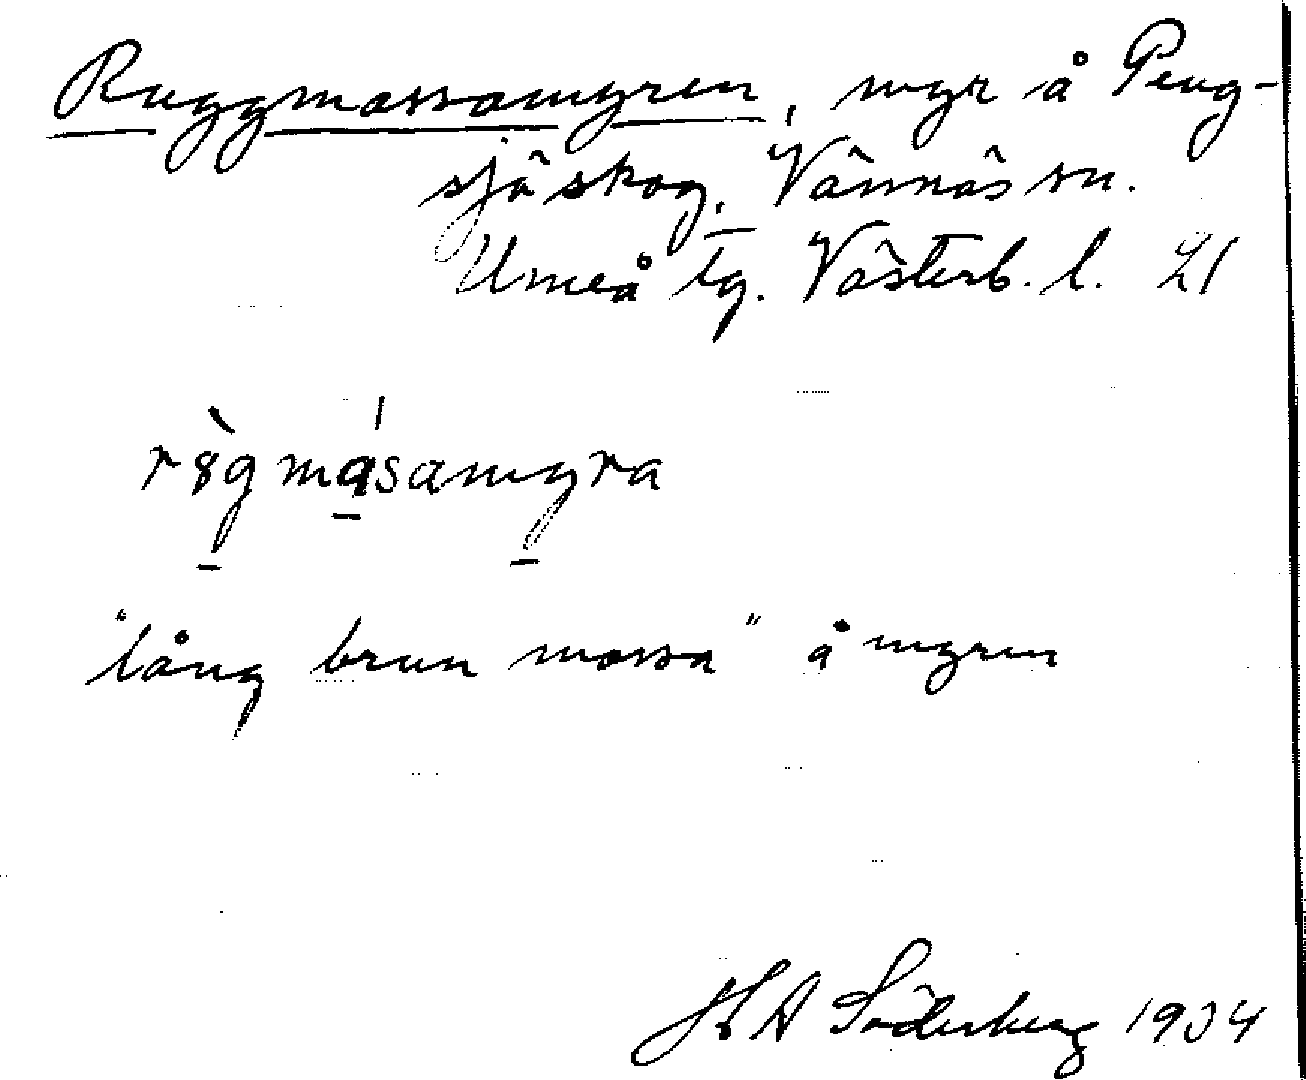 Ruggmossamyren, myr å Peng-
sjö skog. Vännäs sn.
Umeå tg. Västerb. l. 21
"lång brun mossa" å myren
H A Söderberg 1934